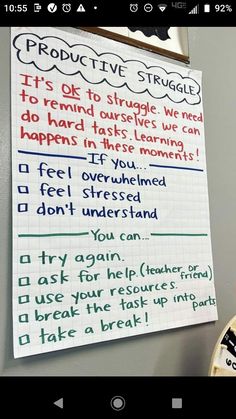 10:55
4G
92%
PRODUCTIVE STRUGGLE
It's OK to struggle. We need
to remind ourselves we can
do hard tasks. Learning
happens in these moments!
If you...
feel overwhelmed
feel stressed
don't understand
You can...
try again.
ask for help. (teacher or friend)
use your resources.
break the task up into parts
take a break!